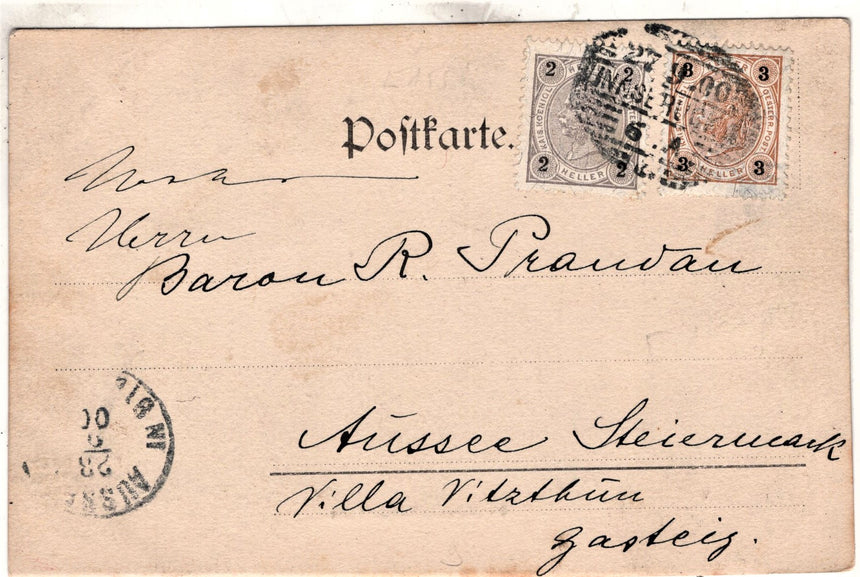 Postkarte.
2 2
KAIS. KOENIGL.
2 HELLER 2
3 3
OESTERR. POST.
3 HELLER 3
27 00
INNSBRUCK
6
Herrn
Baron R. Prandau
Aussee Steiermark
Villa Vitzthun
Gasteig.
IN
AUSSEE
23
00